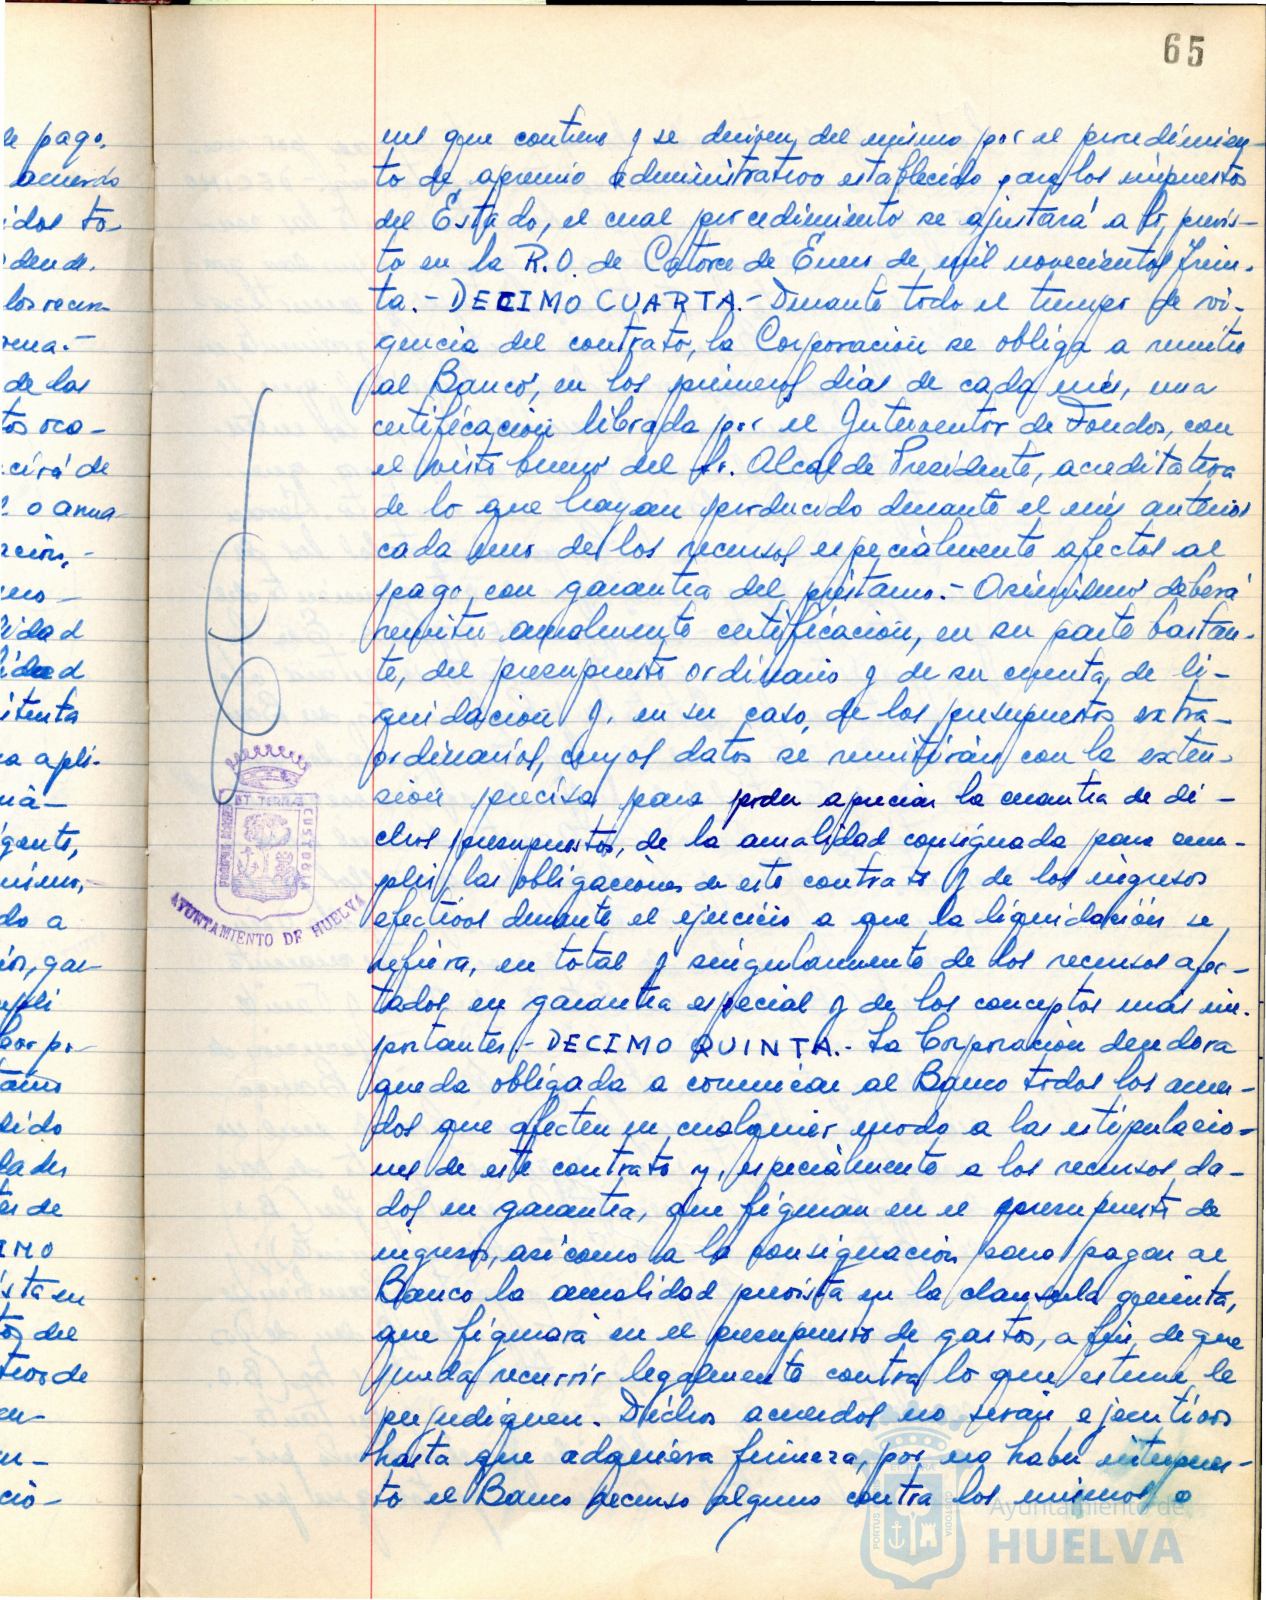 65
le pago,
acuerdo
idos to-
los recur-
de los
tos oca-
cirá de
o anua-
rción,-
idad
idad
ca apli-
gente,
do a
IMO
nes que contiene y se deriven del mismo por el procedimien-
to de apremio administrativo establecido para los impuestos
del Estado, el cual procedimiento se ajustará a lo previs-
to en la R.O. de Catorce de Enero de mil novecientos trein-
ta.- DECIMO CUARTA.- Durante todo el tiempo de vi-
gencia del contrato, la Corporación se obliga a remitir
al Banco, en los primeros días de cada mes, una
certificación librada por el Interventor de Fondos, con
el visto bueno del Sr. Alcalde Presidente, acreditativa
de lo que hayan producido durante el mes anterior
cada uno de los recursos especialmente afectos al
pago, con garantía del préstamo.- Asimismo deberá
remitir anualmente certificación, en su parte bastan-
te, del presupuesto ordinario y de su cuenta de li-
quidación y, en su caso, de los presupuestos extra-
ordinarios, cuyos datos se remitirán con la exten-
sión precisa para poder apreciar la cuantía de di-
chos presupuestos, de la anualidad consignada para cum-
plir las obligaciones de este contrato y de los ingresos
efectivos durante el ejercicio a que la liquidación se
refiera, en total y singularmente de los recursos afec-
tados en garantía especial y de los conceptos más im-
portantes.- DECIMO QUINTA.- La Corporación deudora
queda obligada a comunicar al Banco todos los acuer-
dos que afecten en cualquier modo a las estipulacio-
nes de este contrato y, especialmente a los recursos da-
dos en garantía, que figuran en el presupuesto de
ingresos, así como a la consignación para pagar al
Banco la anualidad prevista en la clausula quinta,
que figurará en el presupuesto de gastos, a fin de que
pueda recurrir legalmente contra lo que estime le
perjudiquen. Dichos acuerdos no serán ejecutivos
hasta que adquiera firmeza, por no haber interpues-
to el Banco recurso alguno contra los mismos o
PORTUS MARIS ET TERRAE CUSTODIA
AYUNTAMIENTO DE HUELVA
Ayuntamiento de
HUELVA